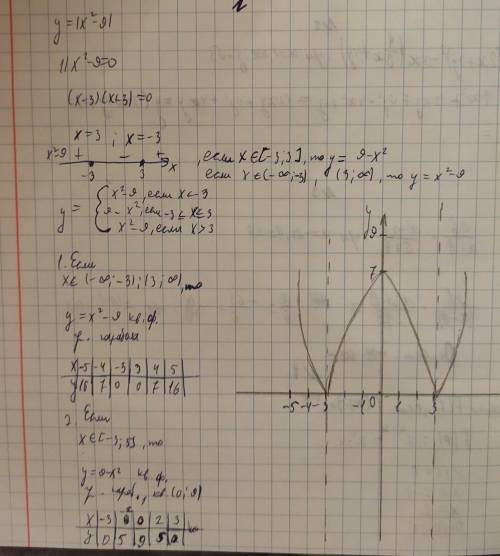 y = |x²-9|
1) x²-9=0
(x-3)(x+3)=0
x=3 ; x=-3
x²-9 + - + x
-3 3
, если x∈[-3;3], то y = 9-x²
если x∈(-∞;-3), (3;∞), то y = x²-9
y = { x²-9, если x<-3
9-x², если -3≤x≤3
x²-9, если x>3
1. Если
x∈(-∞;-3);(3;∞), то
y = x²-9 кв. ф.
парабола
x -5 -4 -3 3 4 5
y 16 7 0 0 7 16
2 Если
x∈[-3;3], то
y=9-x² кв. ф.
(0;9)
x -3 0 2 3
y 0 5 9 5 0
y
9
7
-5 -4 -3 -1 0 1 3